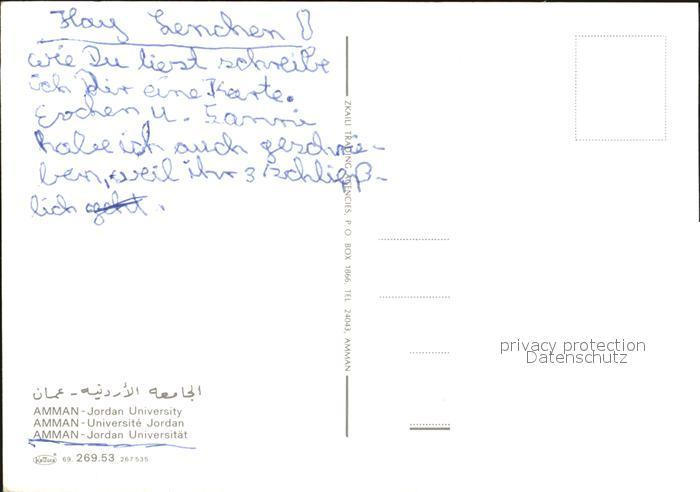 Hay Lenchen!
wie Du liest schreibe
ich Dir eine Karte.
Evchen u. Sanni
habe ich auch geschrie-
ben, weil ihr 3 schließ-
lich geht.
ZKAILI TRADING AGENCIES, P. O. BOX 1866, TEL. 24043, AMMAN
privacy protection
Datenschutz
الجامعه الأردنيه - عمان
AMMAN - Jordan University
AMMAN - Université Jordan
AMMAN - Jordan Universität
69. 269.53 267535